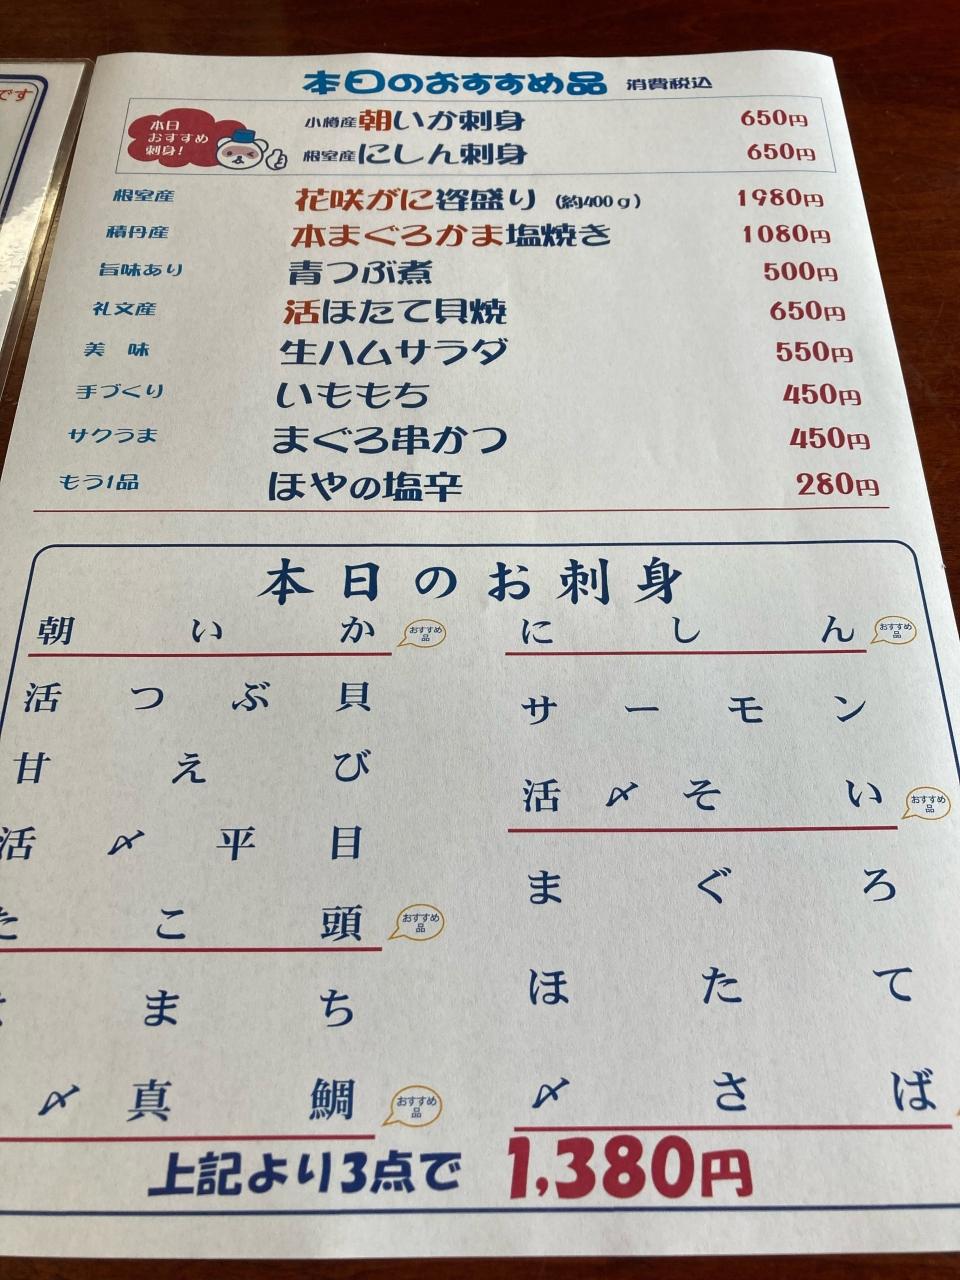 です
本日のおすすめ品 消費税込
本日
おすすめ
刺身!
小樽産朝いか刺身 650円
根室産にしん刺身 650円
根室産 花咲がに姿盛り (約400g) 1980円
積丹産 本まぐろかま塩焼き 1080円
旨味あり 青つぶ煮 500円
礼文産 活ほたて貝焼 650円
美 味 生ハムサラダ 550円
手づくり いももち 450円
サクうま まぐろ串かつ 450円
もう1品 ほやの塩辛 280円
本日のお刺身
朝いか おすすめ品
活つぶ貝
甘えび
活〆平目
たこ頭 おすすめ品
まち
〆真鯛 おすすめ品
にしん おすすめ品
サーモン
活〆そい おすすめ品
まぐろ
ほたて
〆さば
上記より3点で 1,380円